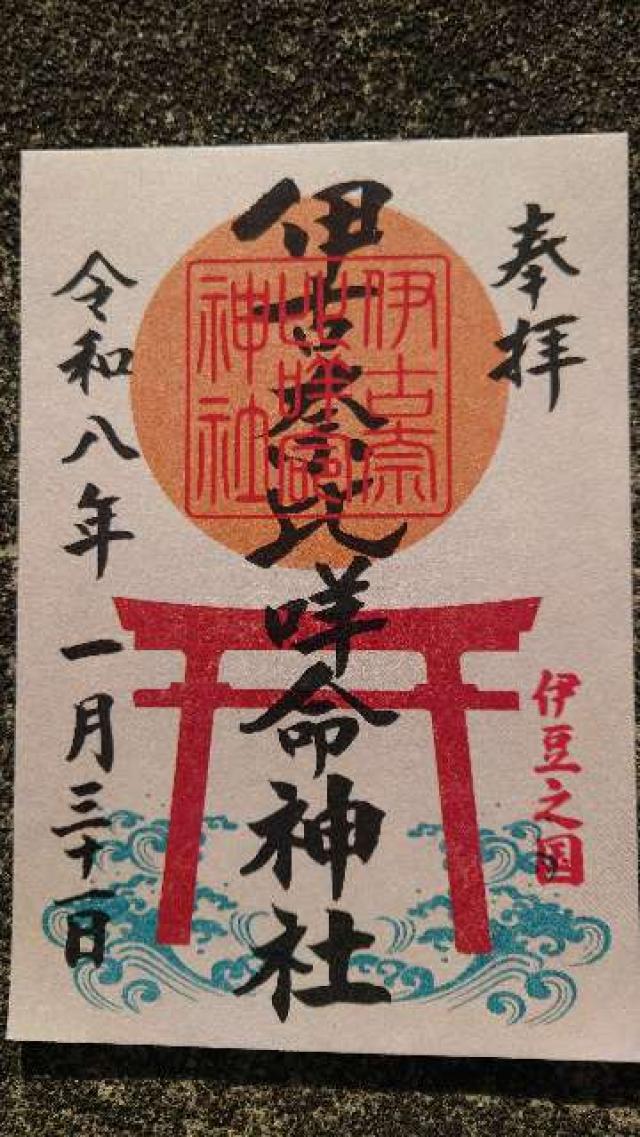 奉拝
伊豆之国
伊古奈比咩命神社
伊古奈
比咩命
神社
令和八年 一月三十一日